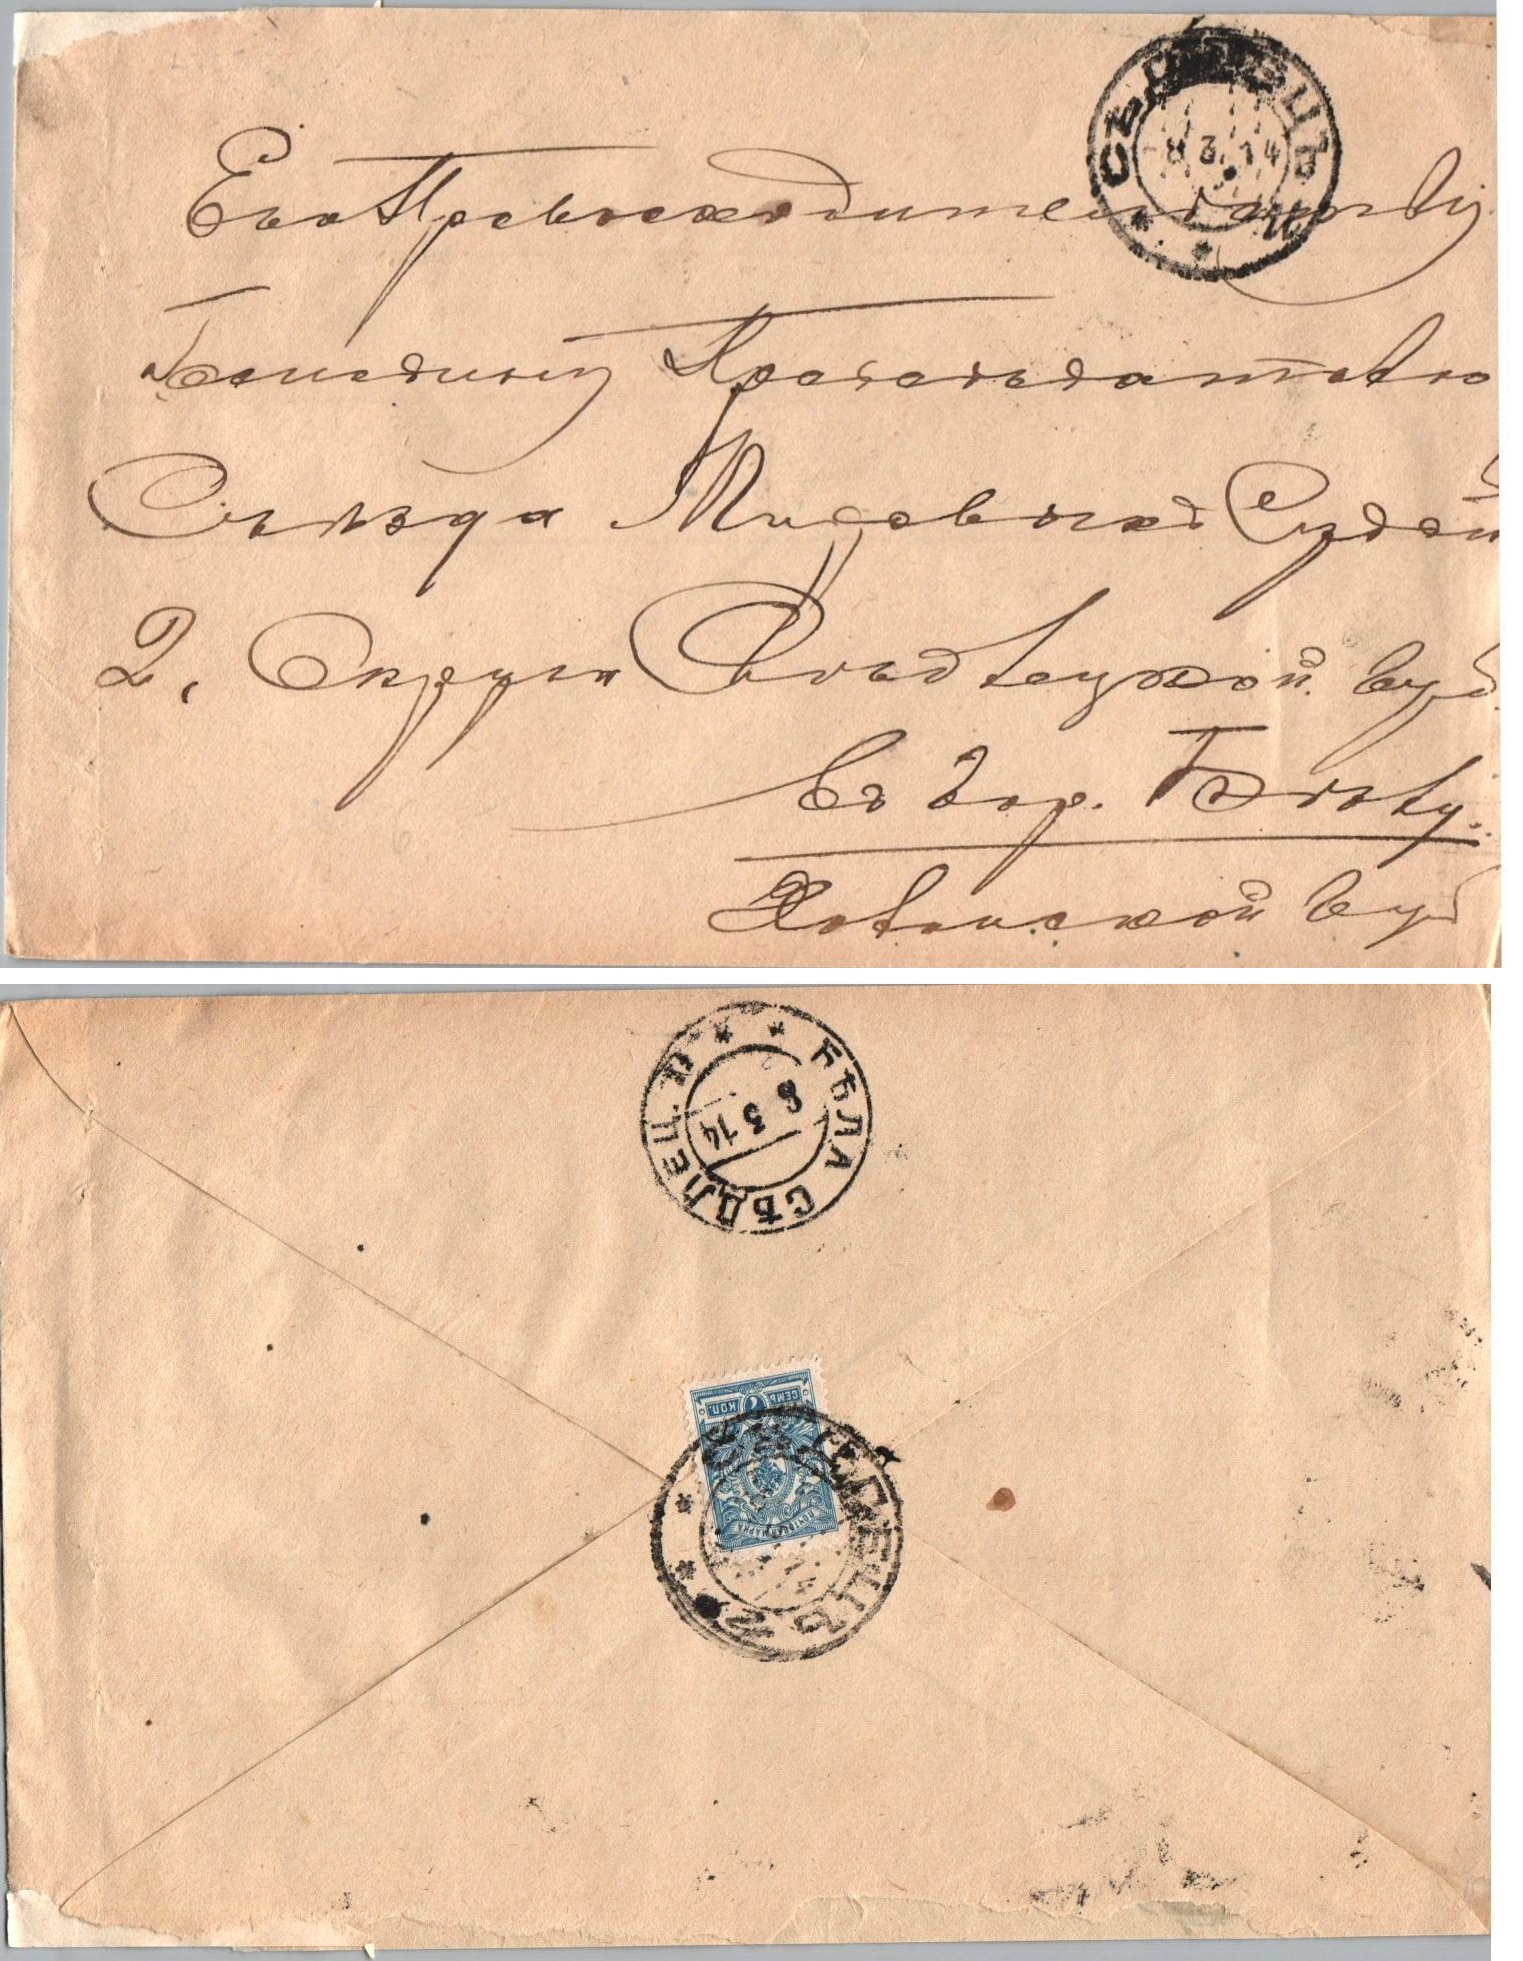 СѢДЛЕЦЪ
8 3.14
Его Превосходительству
Господину Председателю
Съѣзда Мировыхъ Судей
2. Округа Сѣдлецкой губ
въ гор. Бѣлу.
Холмской губ
БѢЛА СѢДЛЕЦ. Г.
8 3 14
СЕМЬ КОП.
ПОЧТОВАЯ МАРКА
СѢДЛЕЦЪ